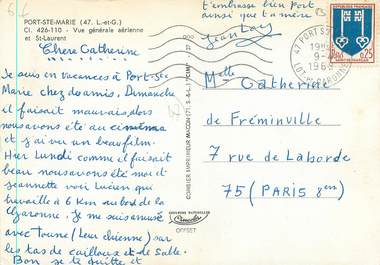 PORT-STE-MARIE (47. L.-et-G.)
Cl. 426-110 - Vue générale aérienne
et St-Laurent
Chere Catherine
Je suis en vacances à Port-Ste
Marie chez des amis. Dimanche
il faisait mauvais, alors
nous avons été au cinéma
et j'ai vu un beau film.
Hier Lundi comme il faisait
beau nous avons été moi et
Jeannette voir Lucien qui
travaille à 6 Km au bord de la
Garonne. Je me suis amusé
avec (leur chienne) sur
les tas de cailloux et de sable.
Bon je te quitte et
t'embrasse bien fort
ainsi que ta mère
Jean
COMBIER IMPRIMEUR MACON (71. S.-&-L.) "CIM"
OFFSET
47 PORT STE
19H
9-
1968
LOT-ET-GARONNE
0,25
Melle Catherine
de Fréminville
7 rue de Laborde
75 (PARIS 8em)